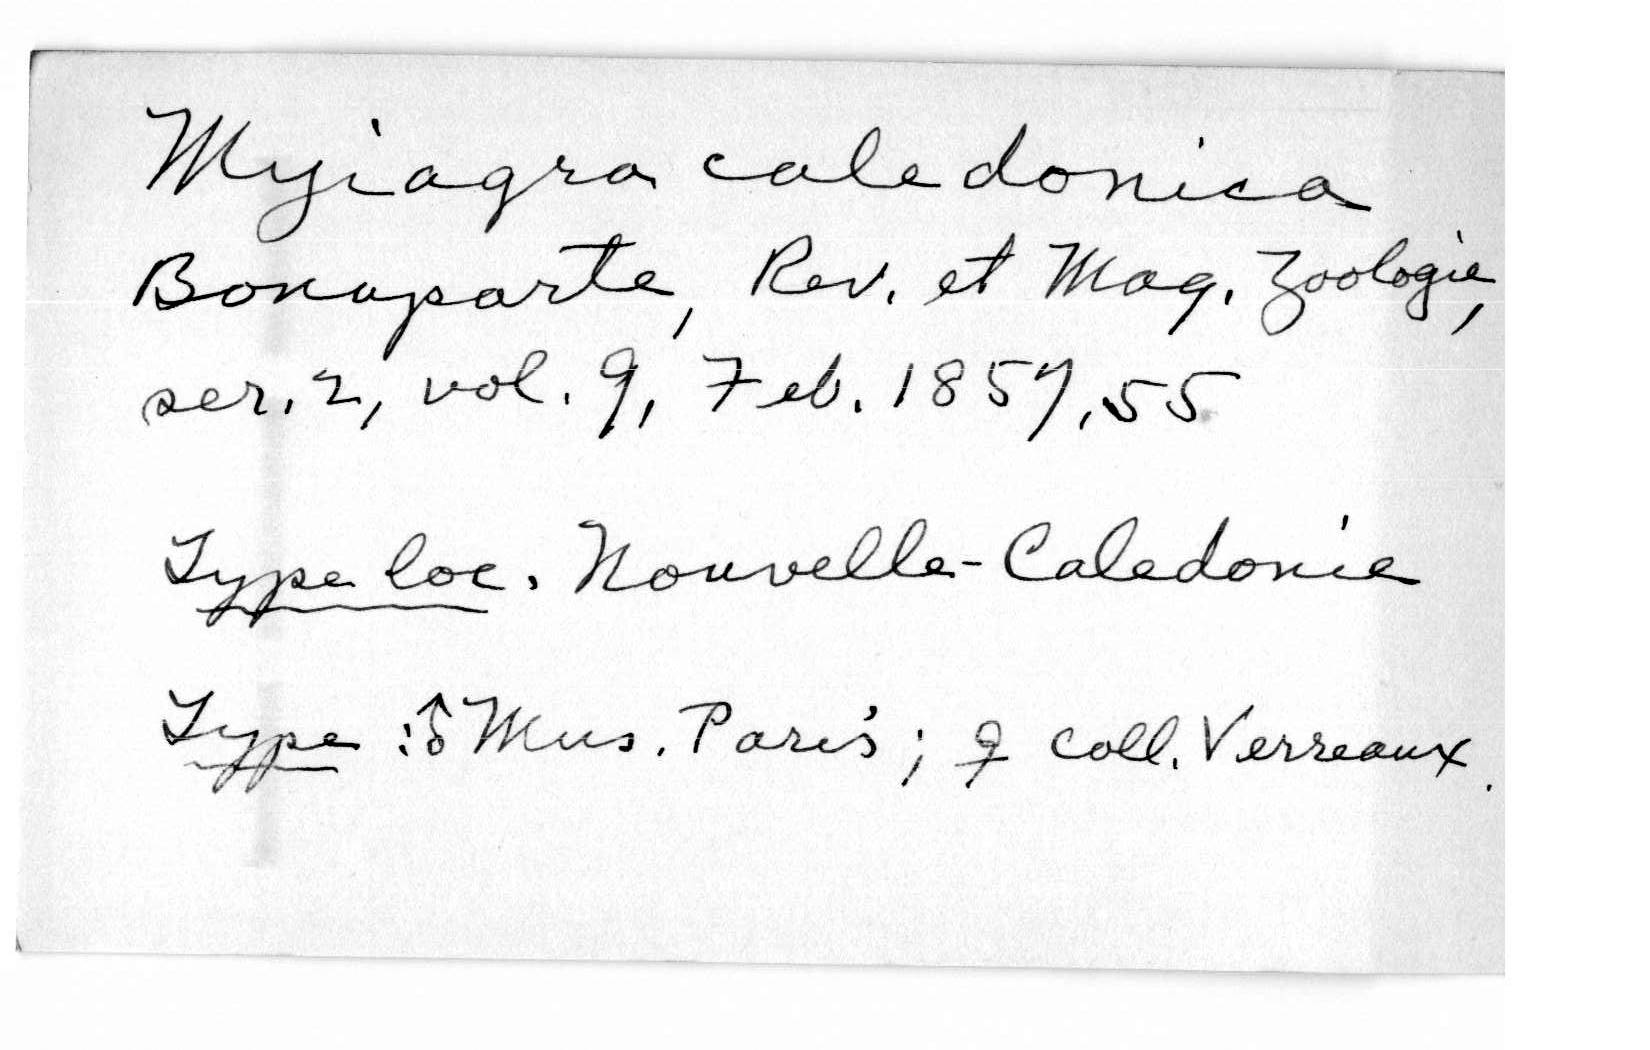 Myiagra caledonica
Bonaparte, Rev. et Mag. Zoologie,
ser. 2, vol. 9, Feb. 1857, 55
Type loc. Nouvelle-Caledonie
Type : ♂ Mus. Paris ; ♀ coll. Verreaux.